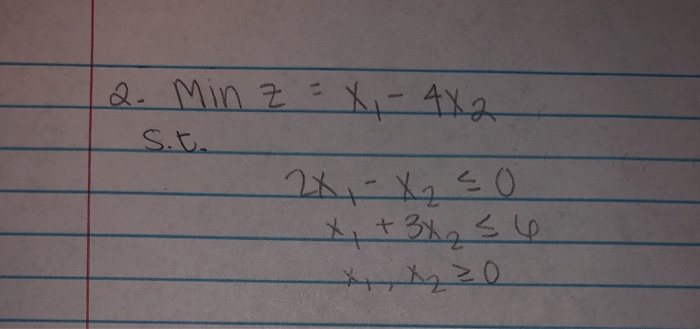 2. Min z = x₁ - 4x₂
s.t.
2x₁ - x₂ ≤ 0
x₁ + 3x₂ ≤ 6
x₁, x₂ ≥ 0